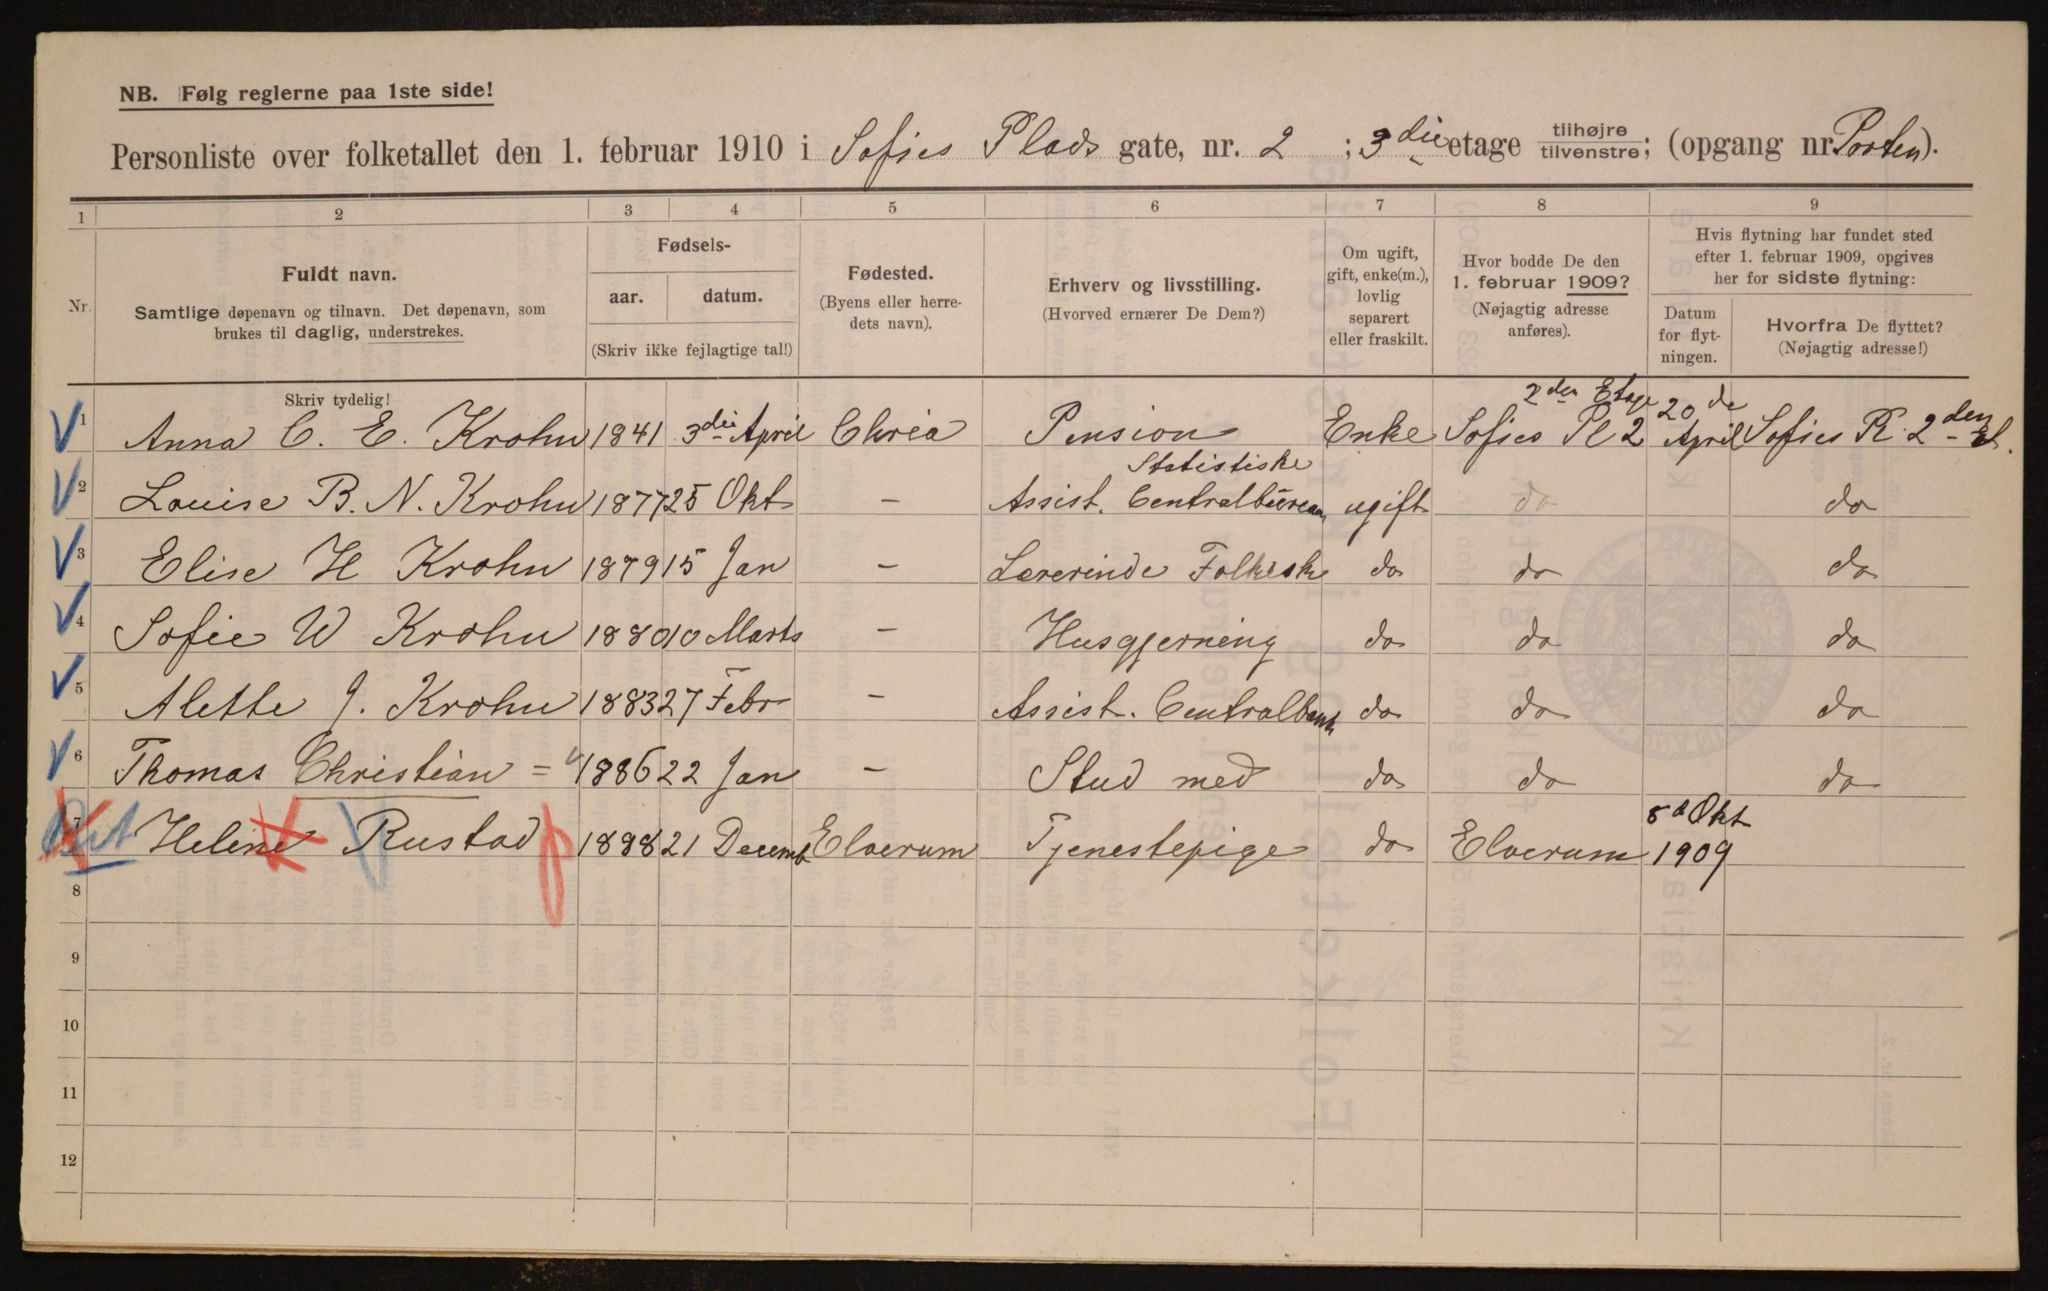 NB. Følg reglerne paa 1ste side!
Personliste over folketallet den 1. februar 1910 i Sofies Plads gate, nr. 2 ; 3die etage tilhøjre tilvenstre; (opgang nr. Porten).
1 2 3 4 5 6 7 8 9
Nr.
Fuldt navn.
Samtlige døpenavn og tilnavn. Det døpenavn, som
brukes til daglig, understrekes.
Fødsels-
aar. datum.
(Skriv ikke fejlagtige tal!)
Fødested.
(Byens eller herre-
dets navn).
Erhverv og livsstilling.
(Hvorved ernærer De Dem?)
Om ugift,
gift, enke(m.),
lovlig
separert
eller fraskilt.
Hvor bodde De den
1. februar 1909?
(Nøjagtig adresse
anføres).
Hvis flytning har fundet sted
efter 1. februar 1909, opgives
her for sidste flytning:
Datum
for flyt-
ningen.
Hvorfra De flyttet?
(Nøjagtig adresse!)
Skriv tydelig!
1 Anna C. E. Krohn 1841 3die April Chria Pension Enke Sofies Pl 2 2den Etage 20de April Sofies Pl. 2den Et.
2 Louise B. N. Krohn 1877 25 Okt - Assist. Statistiske Centralbureau ugift do do
3 Elise H Krohn 1879 15 Jan - Lærerinde Folkesk do do do
4 Sofie W Krohn 1880 10 Marts - Husgjerning do do do
5 Alette J. Krohn 1883 27 Febr - Assist. Centralbank do do do
6 Thomas Christian = 1886 22 Jan - Stud med do do do
7 Heline Rustad 1888 21 Decemb Elverum Tjenestepige do Elverum 8d Okt 1909
8
9
10
11
12